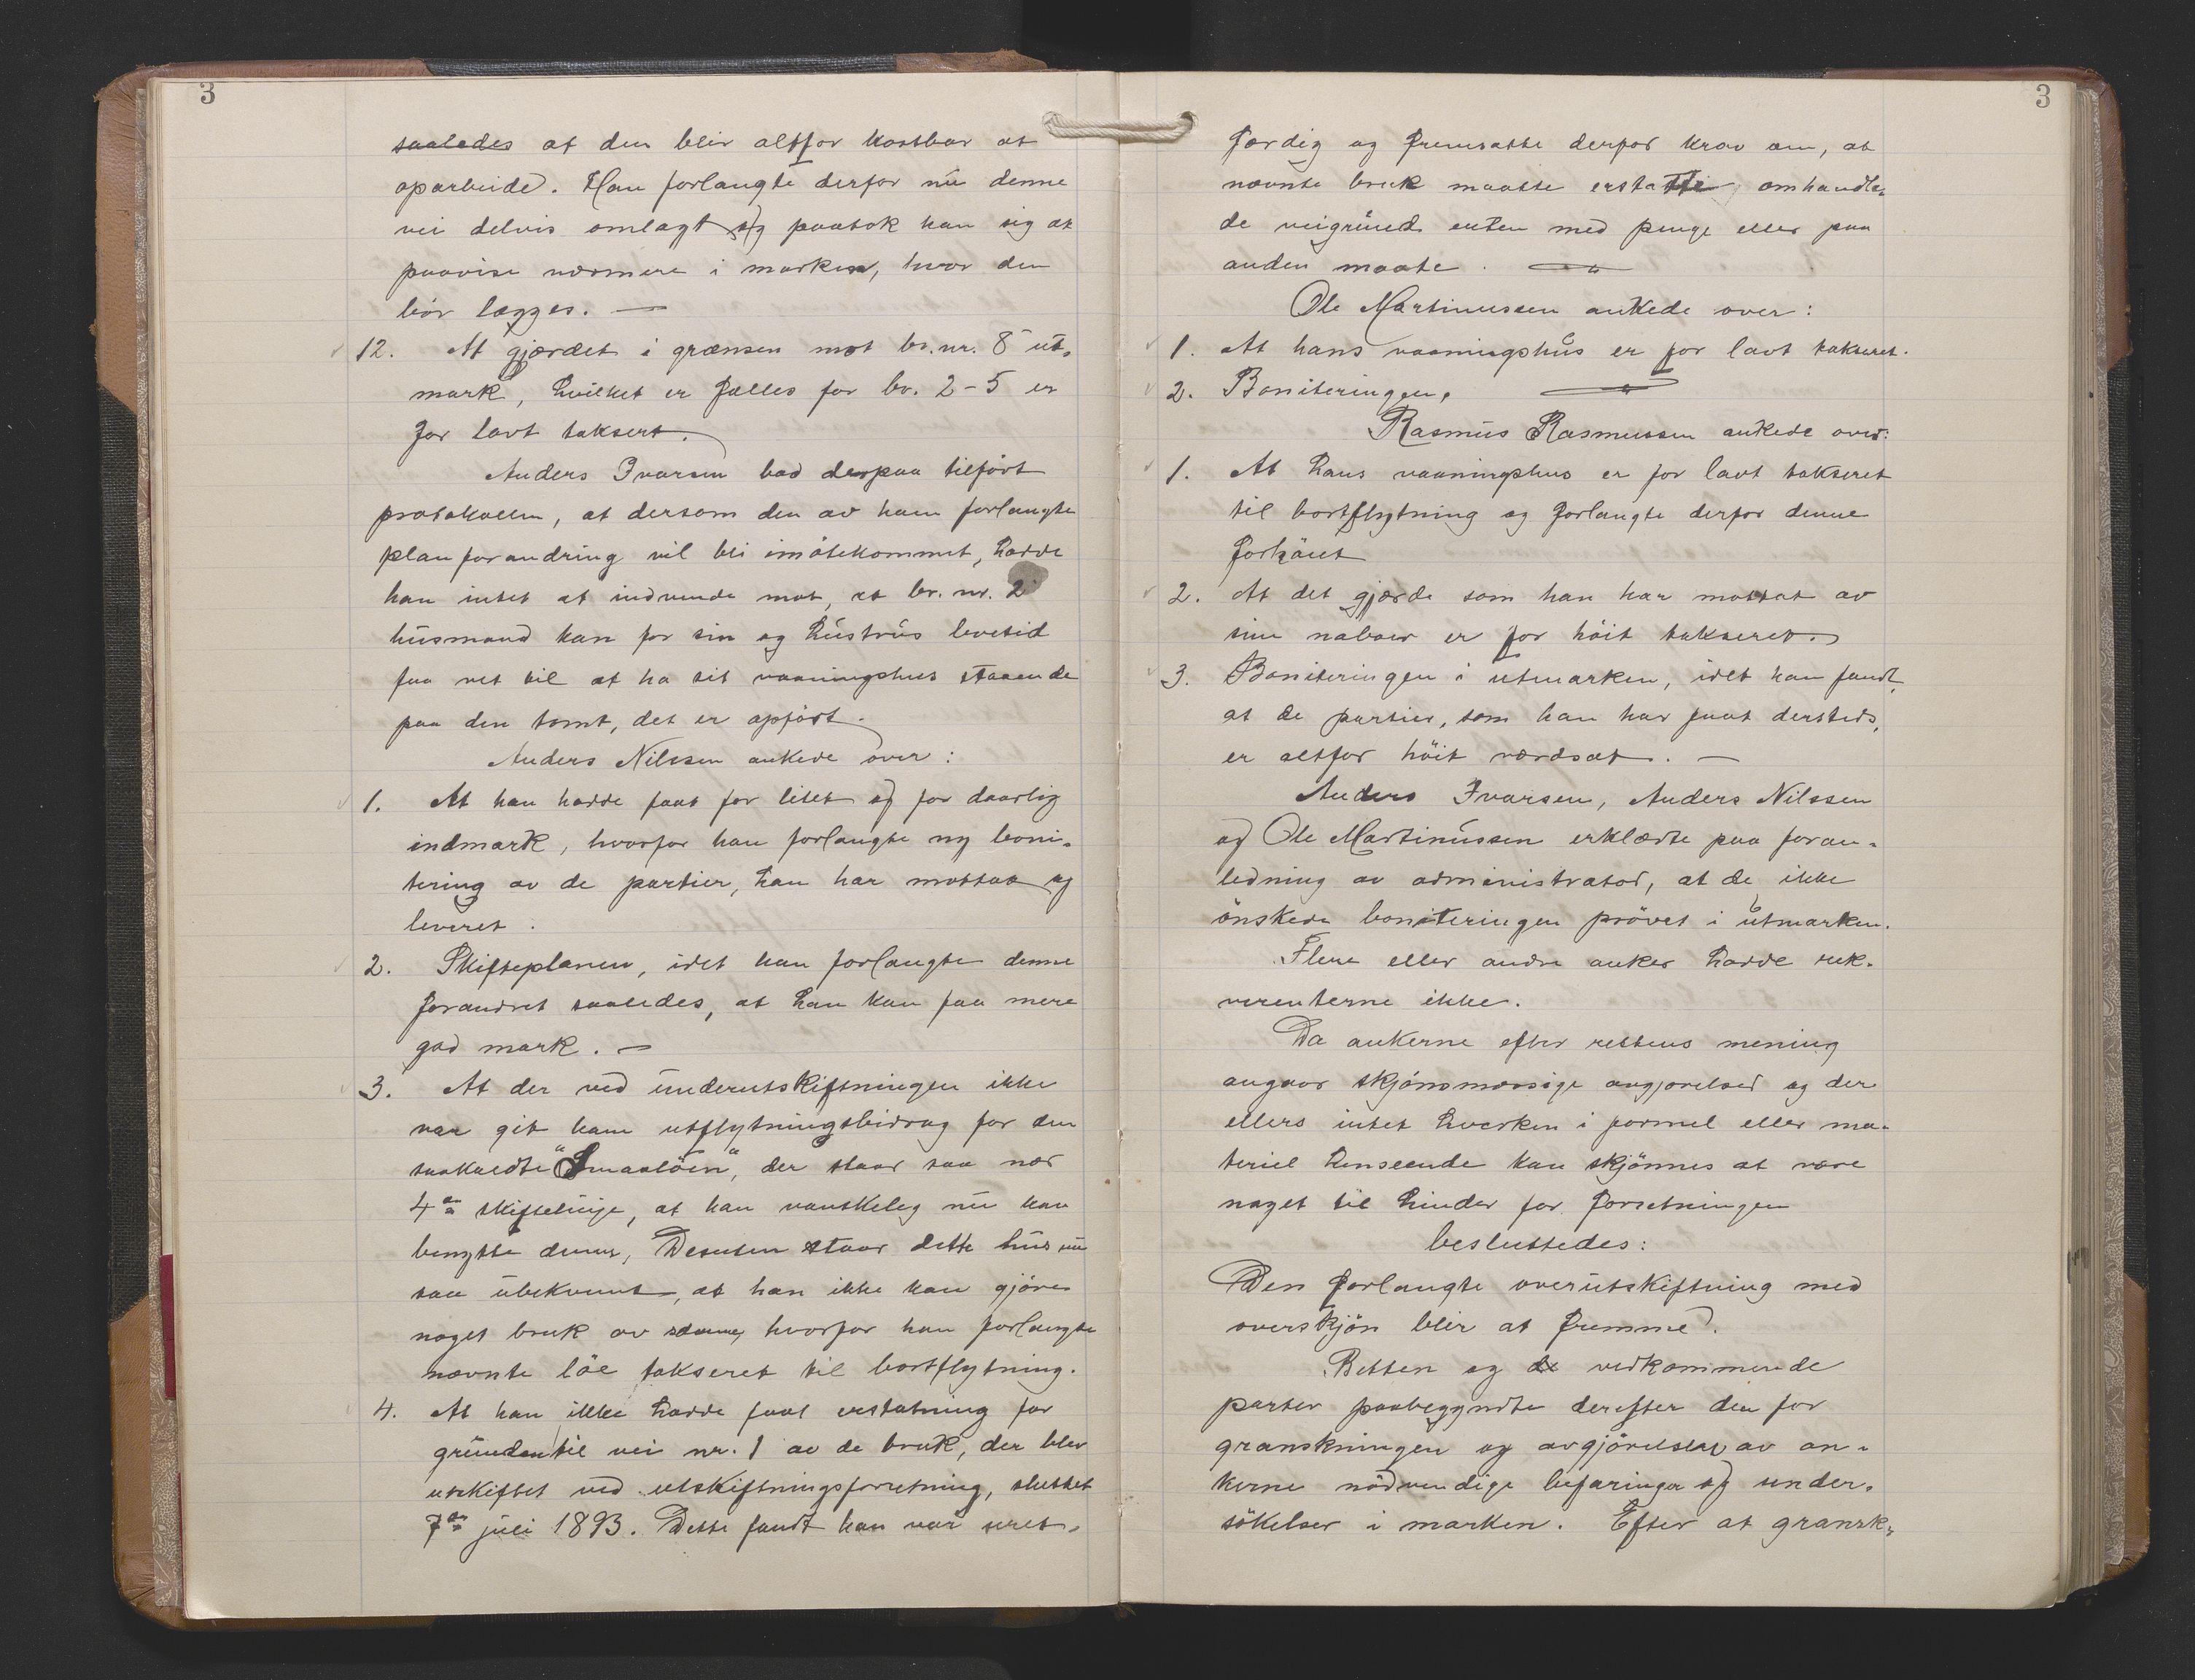 3
saaledes at den blir altfor kostbar at
oparbeide. Han forlangte derfor nu denne
vei delvis omlagt og paatok han sig at
paavise nærmere i marken, hvor den
bør lægges. —
12. At gjærdet i grænsen mot br. nr. 8 ut-
mark, hvilket er fælles for br. 2-5 er
for lavt taksert.
Anders Ivarsen bad derpaa tilført
protokollen, at dersom den av ham forlangte
planforandring vil bli imøtekommet, hadde
han intet at indvende mot, at br. nr. 2
husmand kan for sin og hustrus levetid
faa ret til at ha sit vaaningshus staaende
paa den tomt, det er opført.
Anders Nilssen ankede over:
1. At han hadde faat for litet og for daarlig
indmark, hvorfor han forlangte ny boni-
tering av de partier, han har mottat og
leveret.
2. Skifteplanen, idet han forlangte denne
forandret saaledes, at han kan faa mere
god mark. —
3. At der ved underutskiftningen ikke
var git ham utflytningsbidrag for den
saakaldte "Smaaløen", der staar saa nær
4de skiftelinje, at han vanskeleg nu kan
benytte denne, Desuten staar dette hus nu
saa ubekvemt, at han ikke kan gjøre
noget bruk av samme, hvorfor han forlangte
nævnte løe takseret til bortflytning.
4. At han ikke hadde faat erstatning for
grunden til vei nr. 1 av de bruk, der blev
utskiftet ved utskiftningsforretning, sluttet
7de juli 1893. Dette fandt han var uret-
3
færdig og fremsatte derfor krav om, at
nævnte bruk maatte erstatte omhandle-
de veigrund enten med penge eller paa
anden maate.
Ole Martinussen ankede over:
1. At hans vaaningshus er for lavt takseret.
2. Boniteringen.
Rasmus Rasmussen ankede over:
1. At hans vaaningshus er for lavt takseret
til bortflytning og forlangte derfor denne
forhøiet
2. At det gjærde som han har mottat av
sine naboer er for høit takseret.
3. Boniteringen i utmarken, idet han fandt,
at de partier, som han har faat dersteds,
er altfor høit værdsat. —
Anders Ivarsen, Anders Nilssen
og Ole Martinussen erklærte paa foran-
ledning av administrator, at de ikke
ønskede boniteringen prøvet i utmarken.
Flere eller andre anker hadde rek-
virenterne ikke.
Da ankerne efter rettens mening
angaar skjønsmæssige avgjørelser og der
ellers intet hverken i formel eller ma-
teriel henseende kan skjønnes at være
noget til hinder for forretningen
besluttedes:
Den forlangte overutskiftning med
overskjøn blir at fremme.
Retten og de vedkommende
parter paabegyndte derefter den for
granskningen og avgjørelsen av an-
kerne nødvendige befaringer og under-
søkelser i marken. Efter at gransk-